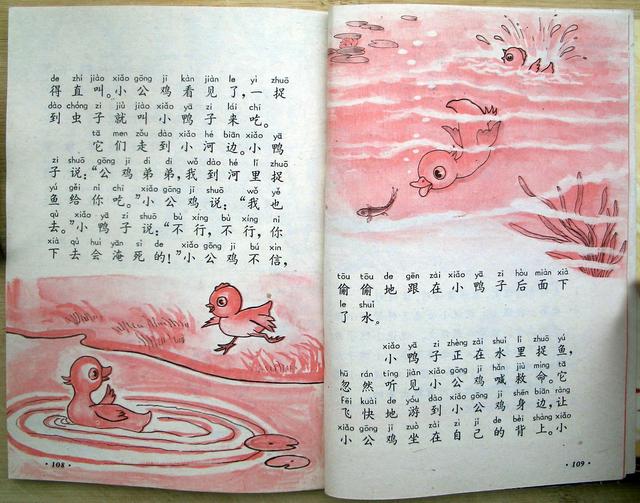 de zhí jiào xiǎo gōng jī kàn jiàn le yì zhuō
得直叫。小公鸡看见了,一捉
dào chóng zi jiù jiào xiǎo yā zi lái chī
到虫子就叫小鸭子来吃。
tā men zǒu dào xiǎo hé biān xiǎo yā
它们走到小河边。小鸭
zi shuō gōng jī dì di wǒ dào hé lǐ zhuō
子说:“公鸡弟弟,我到河里捉
yú gěi nǐ chī xiǎo gōng jī shuō wǒ yě
鱼给你吃。”小公鸡说:“我也
qù xiǎo yā zi shuō bù xíng bù xíng nǐ
去。”小鸭子说:“不行,不行,你
xià qù huì yān sǐ de xiǎo gōng jī bú xìn
下去会淹死的!”小公鸡不信,
·108·
tōu tōu de gēn zài xiǎo yā zi hòu miàn xià
偷偷地跟在小鸭子后面下
le shuǐ
了水。
xiǎo yā zi zhèng zài shuǐ lǐ zhuō yú
小鸭子正在水里捉鱼,
hū rán tīng jiàn xiǎo gōng jī hǎn jiù mìng tā
忽然听见小公鸡喊救命。它
fēi kuài de yóu dào xiǎo gōng jī shēn biān ràng
飞快地游到小公鸡身边,让
xiǎo gōng jī zuò zài zì jǐ de bèi shàng xiǎo
小公鸡坐在自己的背上。小
·109·